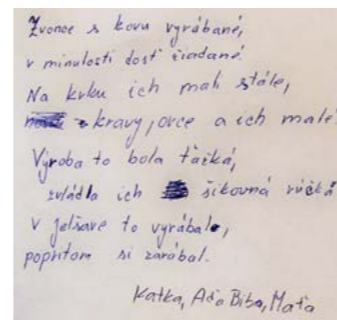 Zvonce s kovu vyrábané,
v minulosti dosť žiadané.
Na krku ich mali stále,
kravy, ovce a ich malé.
Výroba to bola ťažká,
zvládla ich šikovná rúčka
V Jelšave to vyrábal,
popritom si zarábal.
Katka, Aďa Biba, Maťa